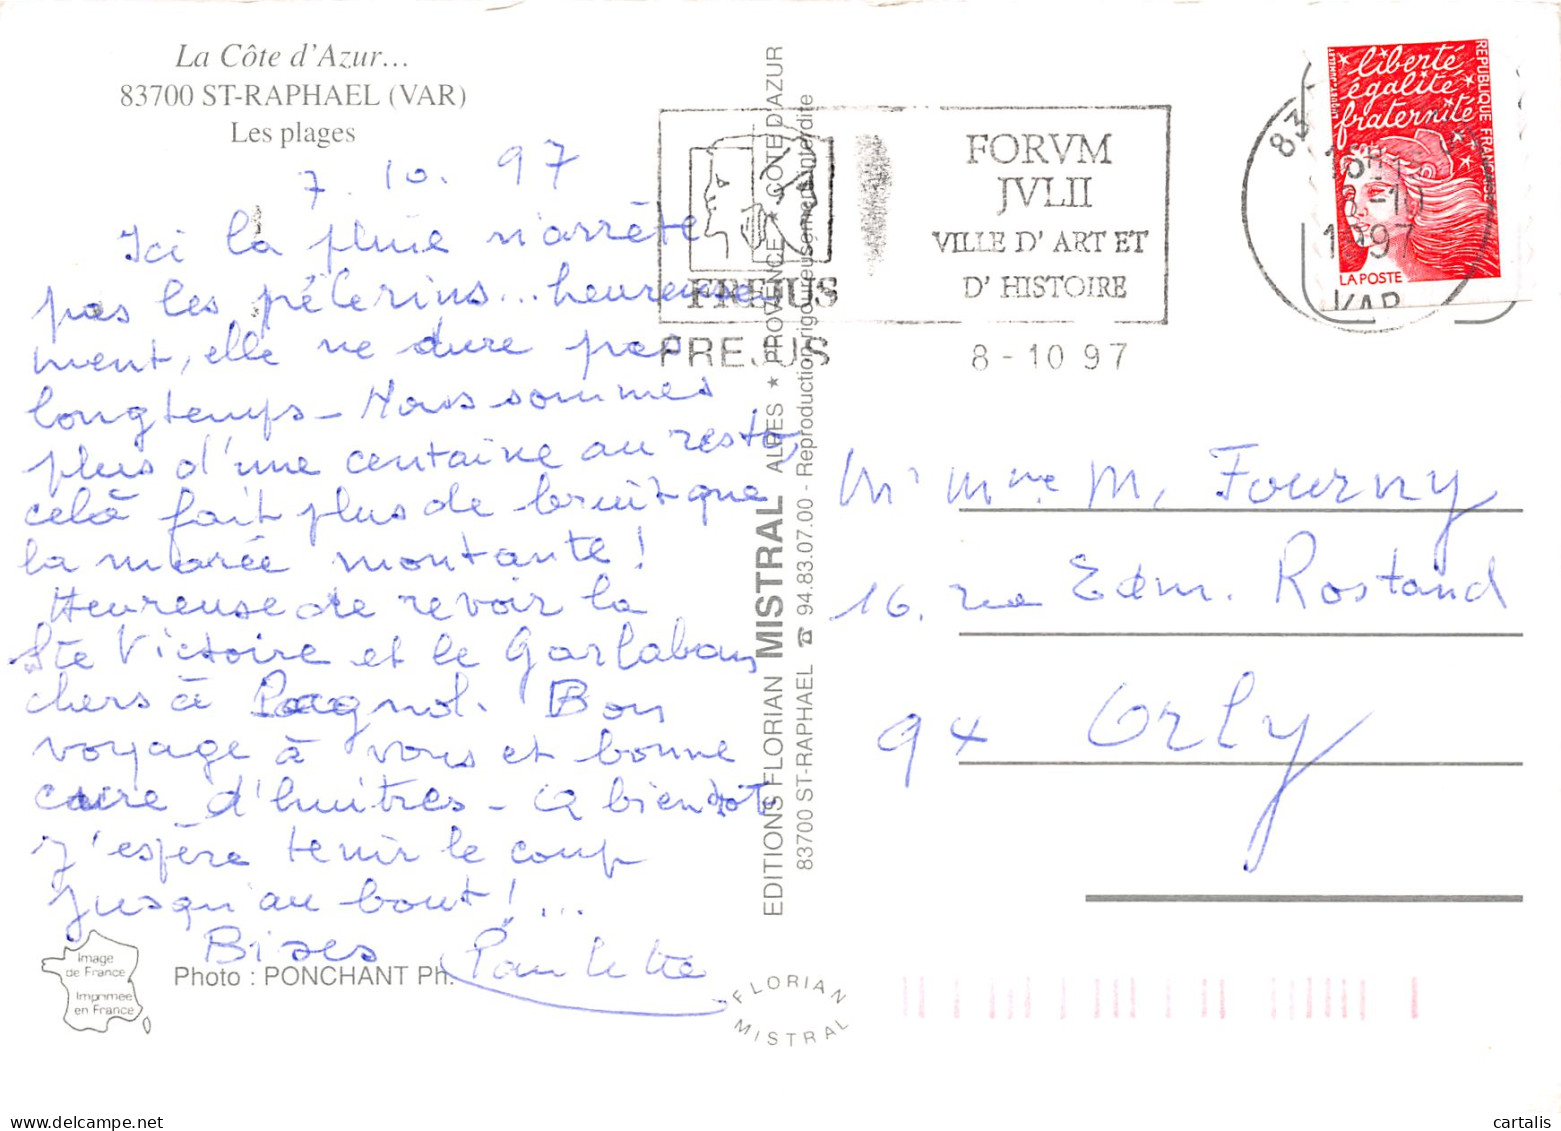 La Côte d'Azur...
83700 ST-RAPHAEL (VAR)
Les plages
7. 10. 97
Ici la pluie n'arrête
pas les pélerins... heureuse
ment, elle ne dure pas
longtemps - Nous sommes
plus d'une centaine au resto,
celà fait plus de bruit que
la marée montante !
Heureuse de revoir la
Ste Victoire et le Garlaban
chers à Pagnol. Bon
voyage à vous et bonne
cure d'huitres - à bientôt
J'espère tenir le coup
jusqu'au bout !...
Bises Paulette
Image
de France
Imprimée
en France
Photo : PONCHANT Ph.
EDITIONS FLORIAN MISTRAL ALPES ★ PROVENCE ★ COTE D'AZUR
83700 ST-RAPHAEL ☎ 94.83.07.00 - Reproduction rigoureusement interdite
FLORIAN
MISTRAL
FREJUS
FREJUS
FORVM
JVLII
VILLE D'ART ET
D'HISTOIRE
8-10 97
83
18H
8-10
1997
VAR
liberté
égalité
fraternité
REPUBLIQUE FRA
LA POSTE
Mr Mme M. Fourny
16. rue Edm. Rostand
94 Orly
cartalis